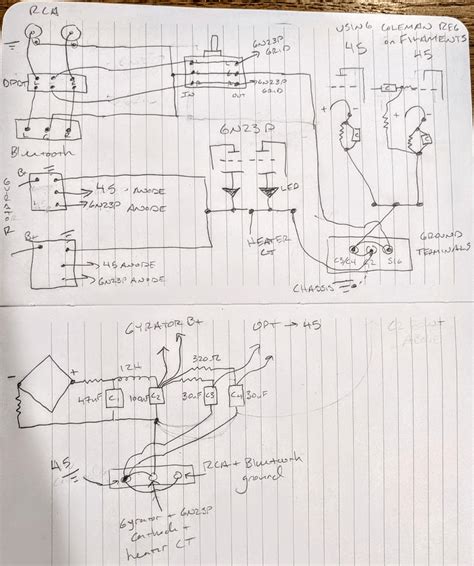 RCA
USING COLEMAN REG
on FILAMENTS
45
45
6N23P
GRID
6N23P
GRID
DPDT
L
R
IN
OUT
Bluetooth
6N23P
B+
45 ANODE
6N23P ANODE
GYRATOR
LED
HEATER
CT
B+
45 ANODE
6N23P ANODE
C3/C4
C2
SIG
GROUND
TERMINALS
CHASSIS
GYRATOR B+
OPT → 45
12H
320Ω
47uF
C1
100uF
C2
30uF
C3
C4
30uF
45
RCA + Bluetooth
ground
Gyrator +
6N23P
Cathode +
heater CT